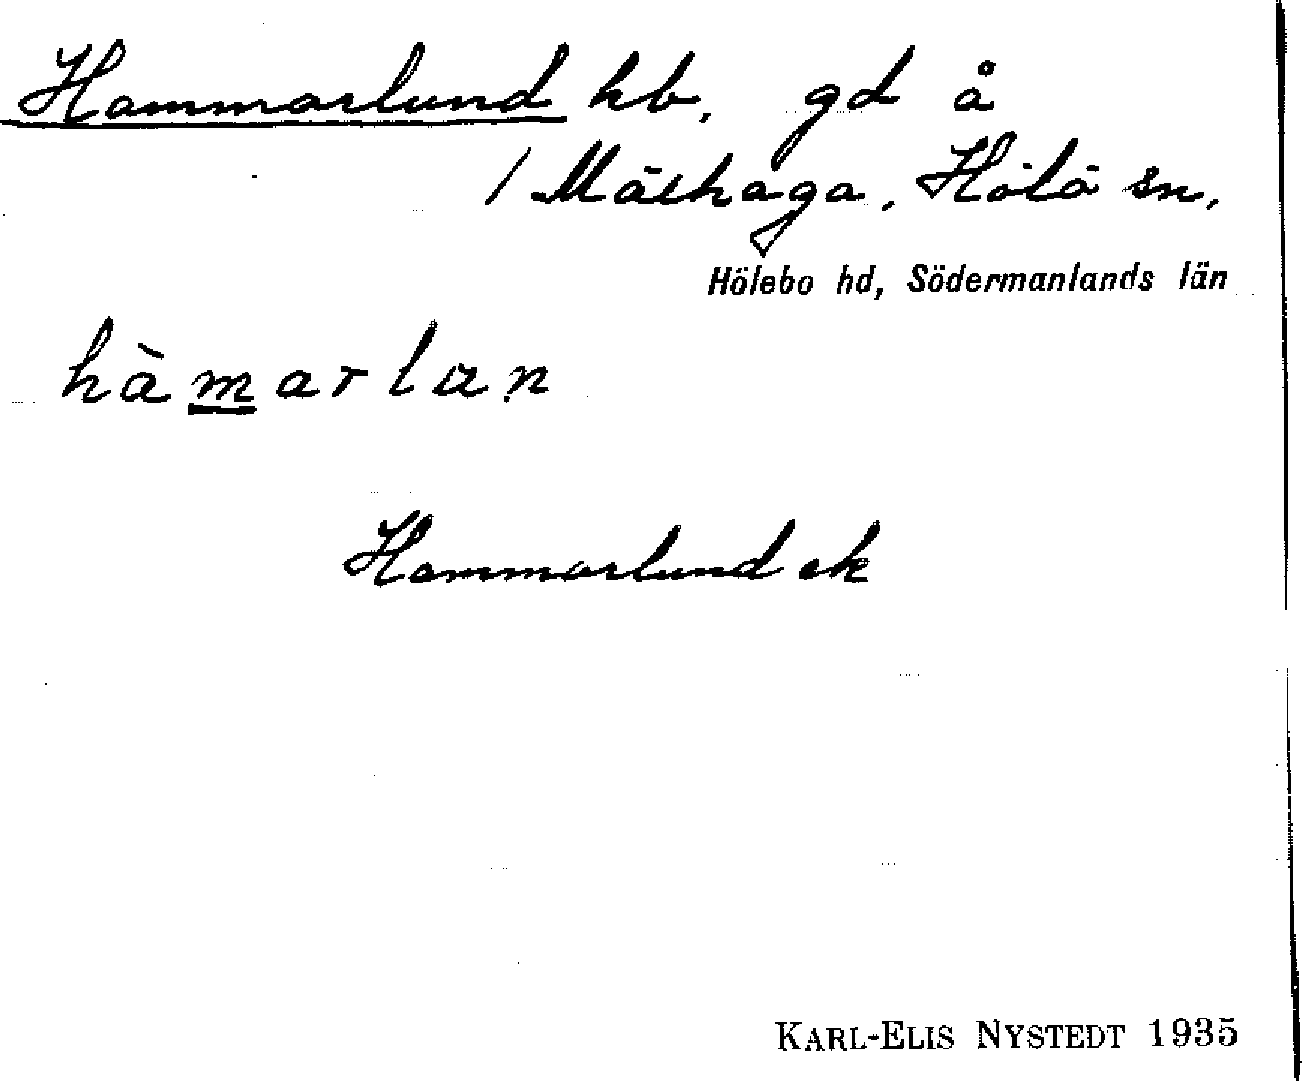 Hammarlund hb, gd å
1 Mälhaga, Hölö sn,
Hölebo hd, Södermanlands län
hàmarlan
Hammarlund ek
KARL-ELIS NYSTEDT 1935